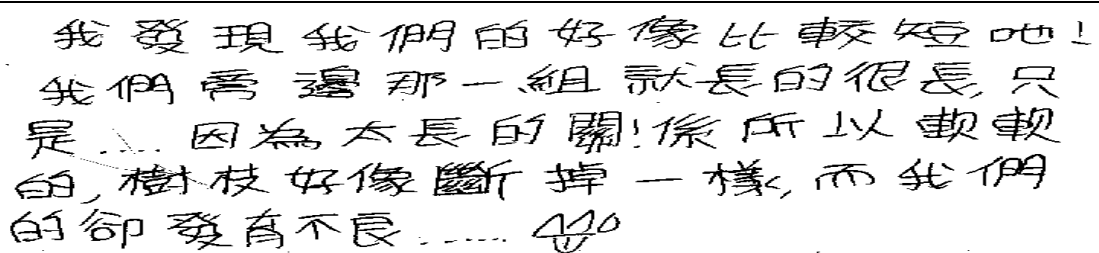 我發現我們的好像比較短吔!
我們旁邊那一組就長的很長,只
是..... 因為太長的關!係所以軟軟
的,樹枝好像斷掉一樣,而我們
的卻發育不良......